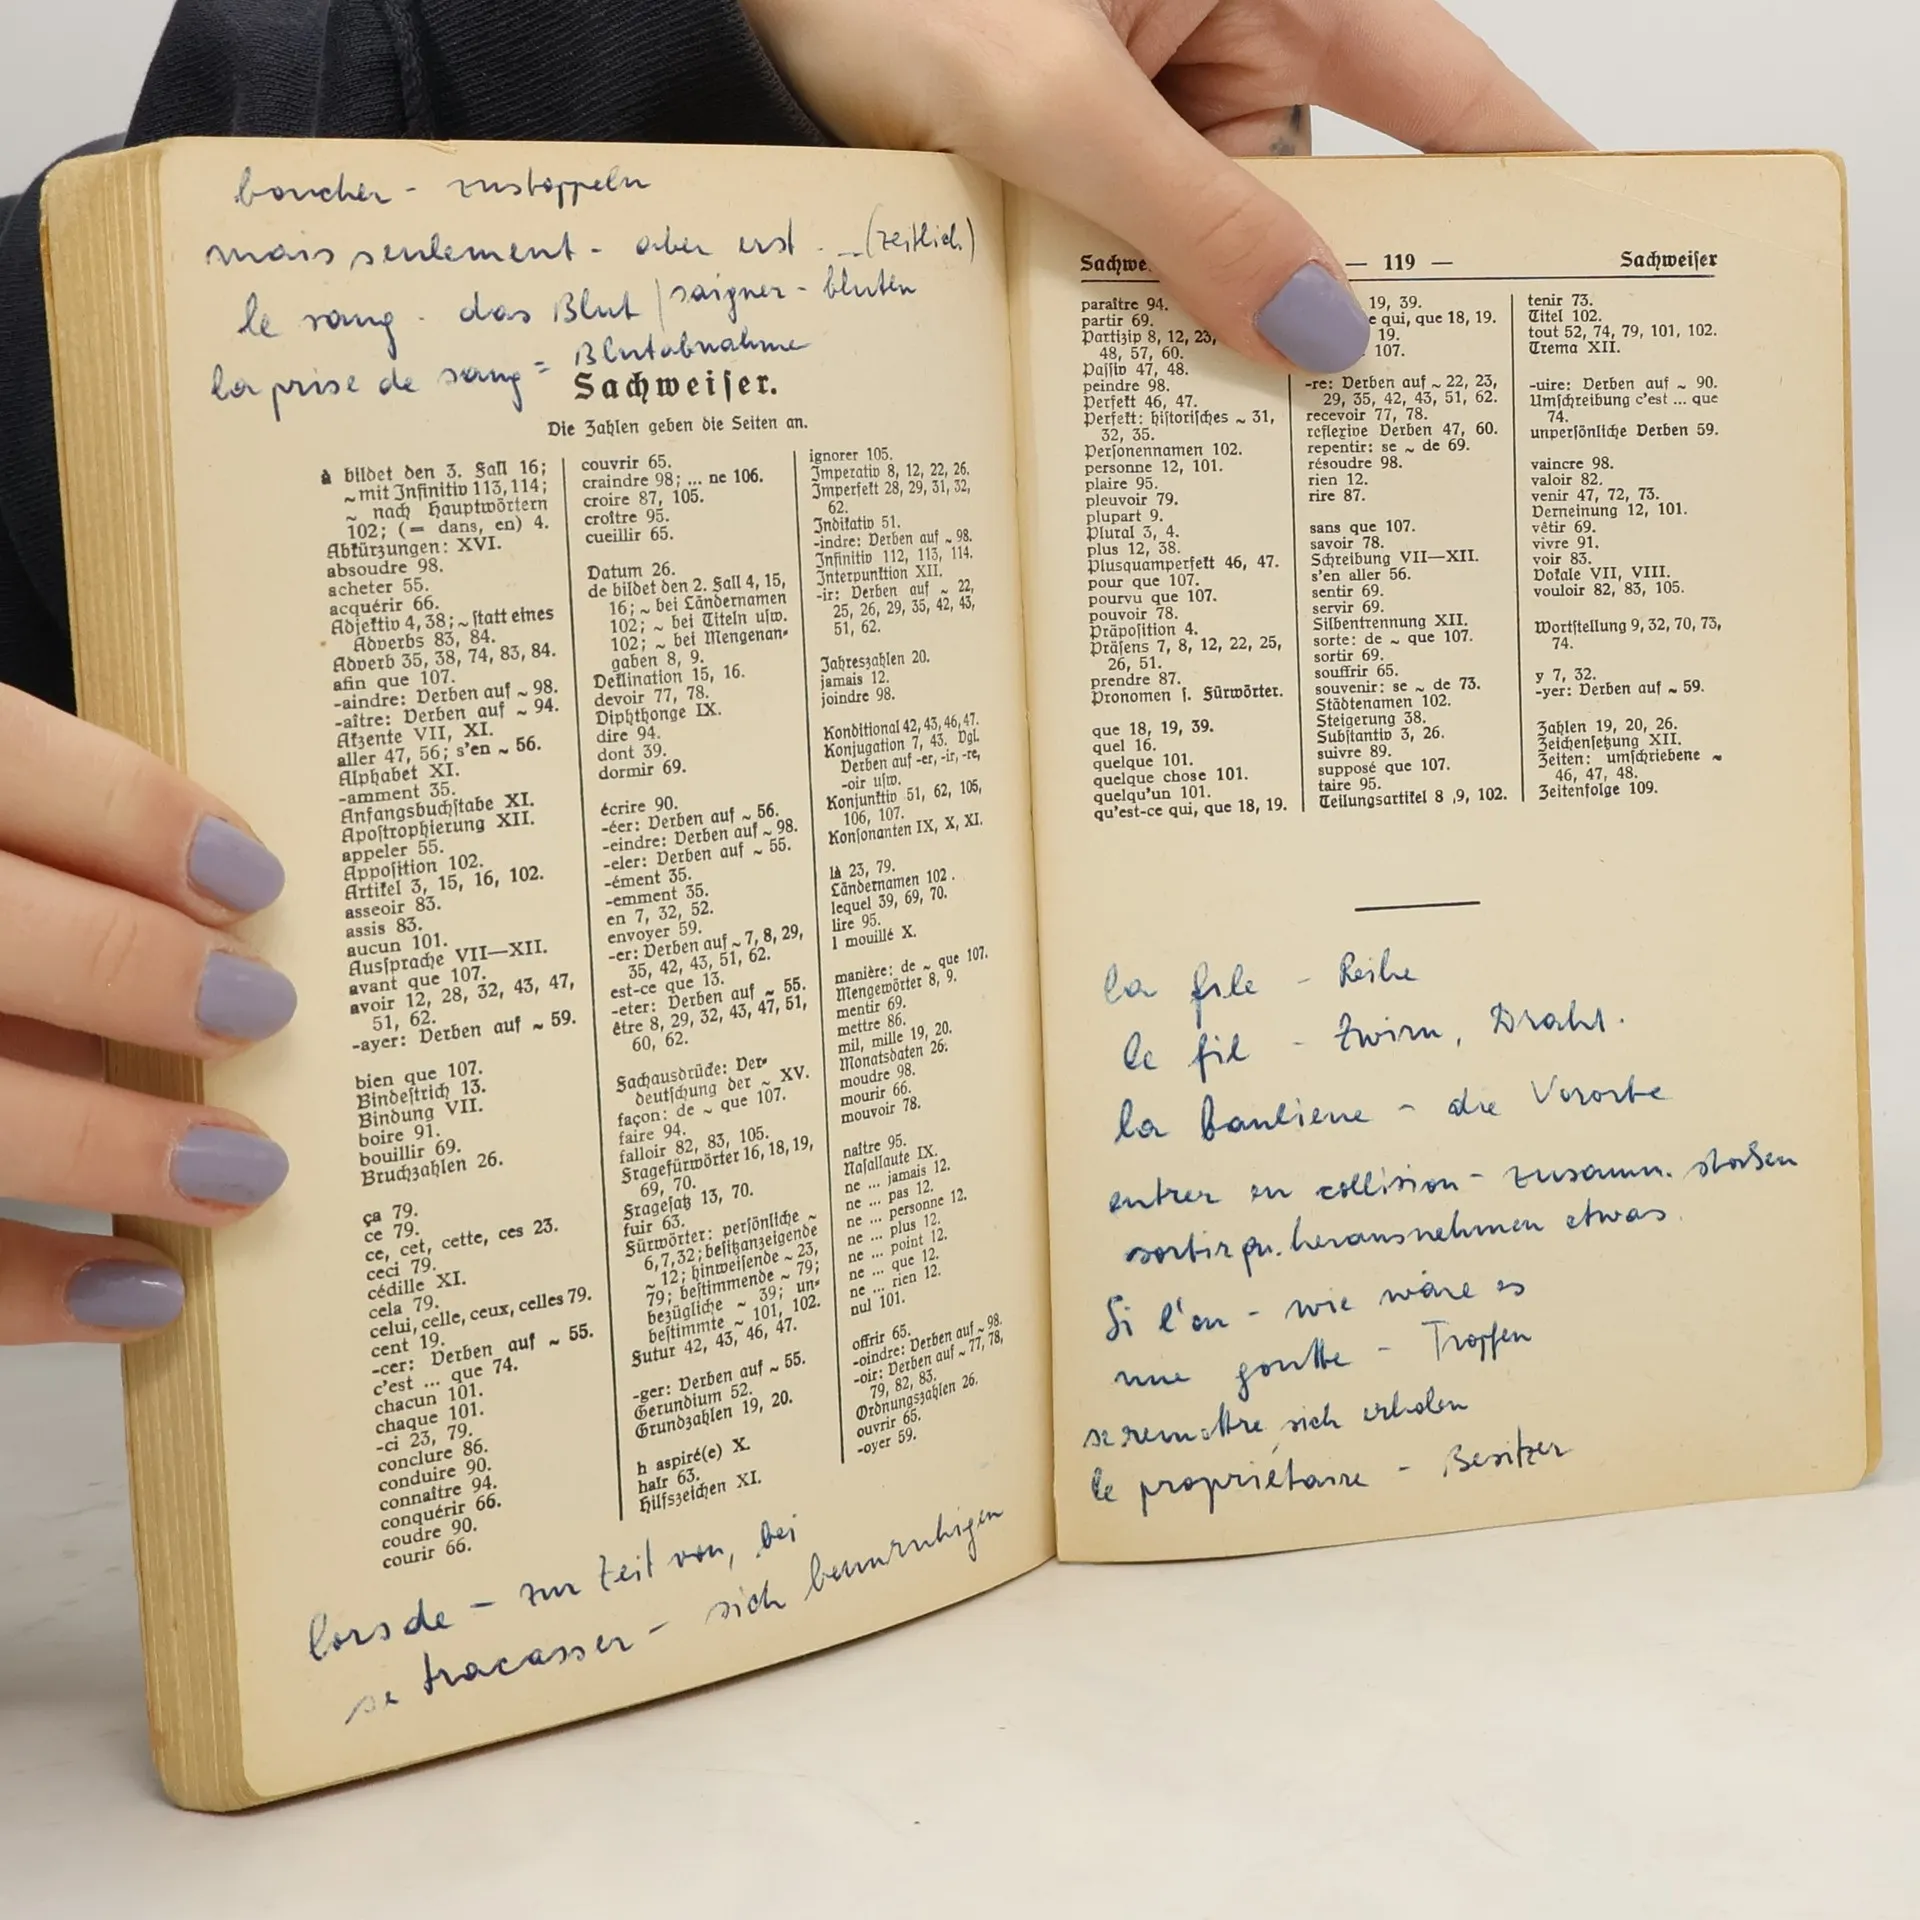 boucher - zustoppeln
mais seulement - aber erst - (zeitlich)
le sang - das Blut / saigner - bluten
la prise de sang = Blutabnahme
Sachweiser.
Die Zahlen geben die Seiten an.
à bildet den 3. Fall 16;
~ mit Infinitiv 113, 114;
~ nach Hauptwörtern
102; (= dans, en) 4.
Abkürzungen: XVI.
absoudre 98.
acheter 55.
acquérir 66.
Adjektiv 4, 38; ~ statt eines
Adverbs 83, 84.
Adverb 35, 38, 74, 83, 84.
afin que 107.
-aindre: Verben auf ~ 98.
-aître: Verben auf ~ 94.
Akzente VII, XI.
aller 47, 56; s'en ~ 56.
Alphabet XI.
-amment 35.
Anfangsbuchstabe XI.
Apostrophierung XII.
appeler 55.
Apposition 102.
Artikel 3, 15, 16, 102.
asseoir 83.
assis 83.
aucun 101.
Aussprache VII—XII.
avant que 107.
avoir 12, 28, 32, 43, 47,
51, 62.
-ayer: Verben auf ~ 59.
bien que 107.
Bindestrich 13.
Bindung VII.
boire 91.
bouillir 69.
Bruchzahlen 26.
ça 79.
ce 79.
ce, cet, cette, ces 23.
ceci 79.
cédille XI.
cela 79.
celui, celle, ceux, celles 79.
cent 19.
-cer: Verben auf ~ 55.
c'est ... que 74.
chacun 101.
chaque 101.
-ci 23, 79.
conclure 86.
conduire 90.
connaître 94.
conquérir 66.
coudre 90.
courir 66.
couvrir 65.
craindre 98; ... ne 106.
croire 87, 105.
croître 95.
cueillir 65.
Datum 26.
de bildet den 2. Fall 4, 15,
16; ~ bei Ländernamen
102; ~ bei Titeln usw.
102; ~ bei Mengenan-
gaben 8, 9.
Deklination 15, 16.
devoir 77, 78.
Diphthonge IX.
dire 94.
dont 39.
dormir 69.
écrire 90.
-éer: Verben auf ~ 56.
-eindre: Verben auf ~ 98.
-eler: Verben auf ~ 55.
-ément 35.
-emment 35.
en 7, 32, 52.
envoyer 59.
-er: Verben auf ~ 7, 8, 29,
35, 42, 43, 51, 62.
est-ce que 13.
-eter: Verben auf ~ 55.
être 8, 29, 32, 43, 47, 51,
60, 62.
Fachausdrücke: Ver-
deutschung der ~ XV.
façon: de ~ que 107.
faire 94.
falloir 82, 83, 105.
Fragefürwörter 16, 18, 19,
69, 70.
Fragesatz 13, 70.
fuir 63.
Fürwörter: persönliche ~
6, 7, 32; besitzanzeigende
~ 12; hinweisende ~ 23,
79; bestimmende ~ 79;
bezügliche ~ 39; un-
bestimmte ~ 101, 102.
Futur 42, 43, 46, 47.
-ger: Verben auf ~ 55.
Gerundium 52.
Grundzahlen 19, 20.
h aspiré(e) X.
haïr 63.
Hilfszeichen XI.
ignorer 105.
Imperativ 8, 12, 22, 26.
Imperfekt 28, 29, 31, 32,
62.
Indikativ 51.
-indre: Verben auf ~ 98.
Infinitiv 112, 113, 114.
Interpunktion XII.
-ir: Verben auf ~ 22,
25, 26, 29, 35, 42, 43,
51, 62.
Jahreszahlen 20.
jamais 12.
joindre 98.
Konditional 42, 43, 46, 47.
Konjugation 7, 43. Vgl.
Verben auf -er, -ir, -re,
-oir usw.
Konjunktiv 51, 62, 105,
106, 107.
Konsonanten IX, X, XI.
là 23, 79.
Ländernamen 102.
lequel 39, 69, 70.
lire 95.
l mouillé X.
manière: de ~ que 107.
Mengewörter 8, 9.
mentir 69.
mettre 86.
mil, mille 19, 20.
Monatsdaten 26.
moudre 98.
mourir 66.
mouvoir 78.
naître 95.
Nasallaute IX.
ne ... jamais 12.
ne ... pas 12.
ne ... personne 12.
ne ... plus 12.
ne ... point 12.
ne ... que 12.
ne ... rien 12.
nul 101.
offrir 65.
-oindre: Verben auf ~ 98.
-oir: Verben auf ~ 77, 78,
79, 82, 83.
Ordnungszahlen 26.
ouvrir 65.
-oyer 59.
lors de - zur Zeit von, bei
se tracasser - sich beunruhigen
Sachwe
— 119 —
Sachweiser
paraître 94.
partir 69.
Partizip 8, 12, 23,
48, 57, 60.
Passiv 47, 48.
peindre 98.
Perfekt 46, 47.
Perfekt: historisches ~ 31,
32, 35.
Personennamen 102.
personne 12, 101.
plaire 95.
pleuvoir 79.
plupart 9.
Plural 3, 4.
plus 12, 38.
Plusquamperfekt 46, 47.
pour que 107.
pourvu que 107.
pouvoir 78.
Präposition 4.
Präsens 7, 8, 12, 22, 25,
26, 51.
prendre 87.
Pronomen s. Fürwörter.
que 18, 19, 39.
quel 16.
quelque 101.
quelque chose 101.
quelqu'un 101.
qu'est-ce qui, que 18, 19.
19, 39.
e qui, que 18, 19.
19.
107.
-re: Verben auf ~ 22, 23,
29, 35, 42, 43, 51, 62.
recevoir 77, 78.
reflexive Verben 47, 60.
repentir: se ~ de 69.
résoudre 98.
rien 12.
rire 87.
sans que 107.
savoir 78.
Schreibung VII—XII.
s'en aller 56.
sentir 69.
servir 69.
Silbentrennung XII.
sorte: de ~ que 107.
sortir 69.
souffrir 65.
souvenir: se ~ de 73.
Städtenamen 102.
Steigerung 38.
Substantiv 3, 26.
suivre 89.
supposé que 107.
taire 95.
Teilungsartikel 8 ,9, 102.
tenir 73.
Titel 102.
tout 52, 74, 79, 101, 102.
Trema XII.
-uire: Verben auf ~ 90.
Umschreibung c'est ... que
74.
unpersönliche Verben 59.
vaincre 98.
valoir 82.
venir 47, 72, 73.
Verneinung 12, 101.
vêtir 69.
vivre 91.
voir 83.
Vokale VII, VIII.
vouloir 82, 83, 105.
Wortstellung 9, 32, 70, 73,
74.
y 7, 32.
-yer: Verben auf ~ 59.
Zahlen 19, 20, 26.
Zeichensetzung XII.
Zeiten: umschriebene ~
46, 47, 48.
Zeitenfolge 109.
la file - Reihe
le fil - Zwirn, Draht.
la banliene - die Vororte
entrer en collision - zusamm. stoßen
sortir qu. herausnehmen etwas
Si l'on - wie wäre es
une goutte - Tropfen
se remettre, sich erholen
le propriétaire - Besitzer